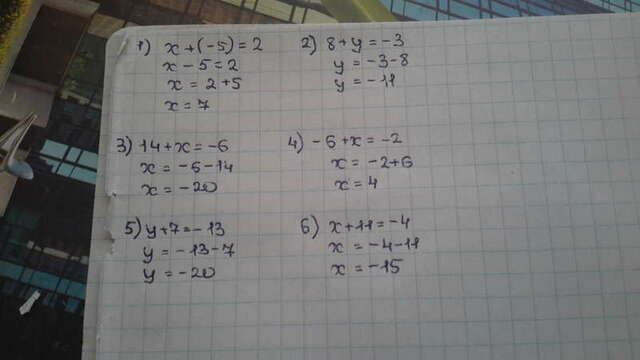 1) x + (-5) = 2
x - 5 = 2
x = 2 + 5
x = 7
2) 8 + y = -3
y = -3 - 8
y = -11
3) 14 + x = -6
x = -6 - 14
x = -20
4) -6 + x = -2
x = -2 + 6
x = 4
5) y + 7 = -13
y = -13 - 7
y = -20
6) x + 11 = -4
x = -4 - 11
x = -15